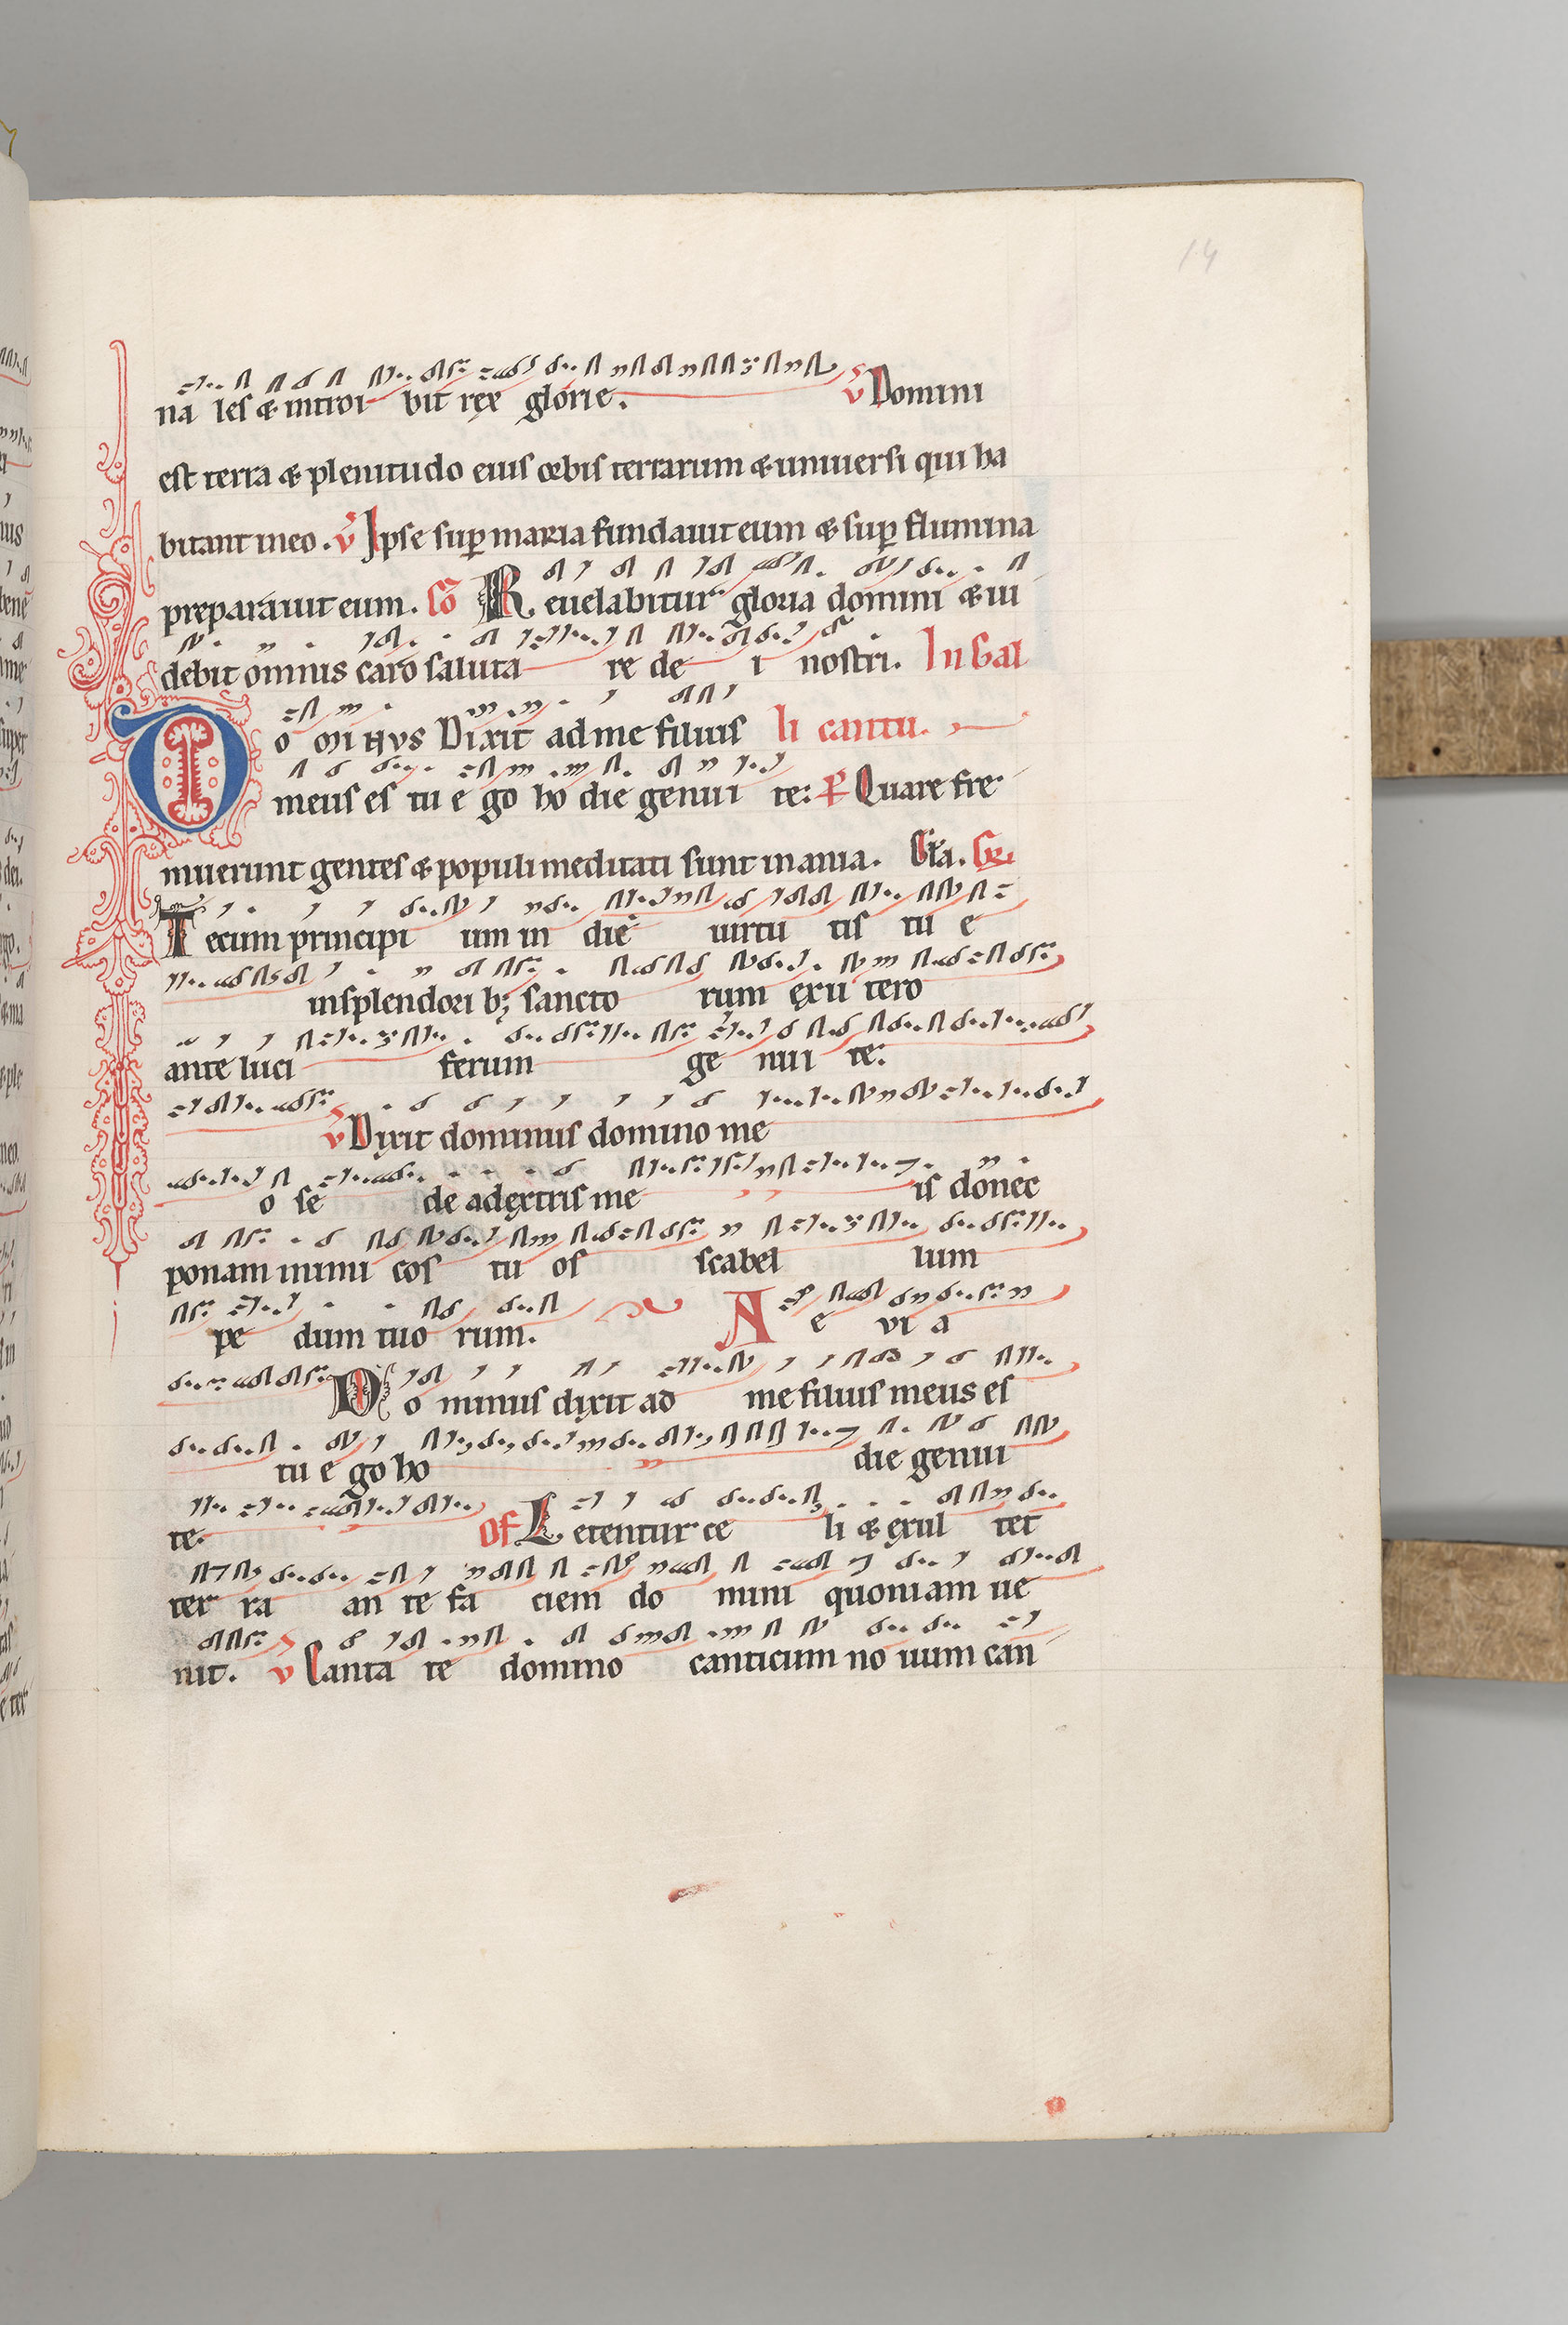 14
na les & introi bit rex glorie. v Domini
est terra & plenitudo eius orbis terrarum & uniuersi qui ha
bitant in eo. v Ipse sup maria fundauit eum & sup flumina
preparauit eum. Co Reuelabitur gloria domini & ui
debit omnis caro saluta re de i nostri. In Gal
Do mi nvs Dixit ad me filius li cantu.
meus es tu e go ho die genui te: Ps Quare fre
muerunt gentes & populi meditati sunt inania. Gla. Gr.
Tecum principi um in die uirtu tis tu e
in splendori b; sancto rum ex u tero
ante luci ferum ge nui te:
v Dixit dominus domino me
o se de adextris me is donec
ponam inimi cos tu os scabel lum
pe dum tuo rum. A e vi a
Do minus dixit ad me filius meus es
tu e go ho die genui
te. Of Letentur ce li & exul tet
ter ra an te fa ciem do mini quoniam ue
nit. v Canta te domino canticum no uum can